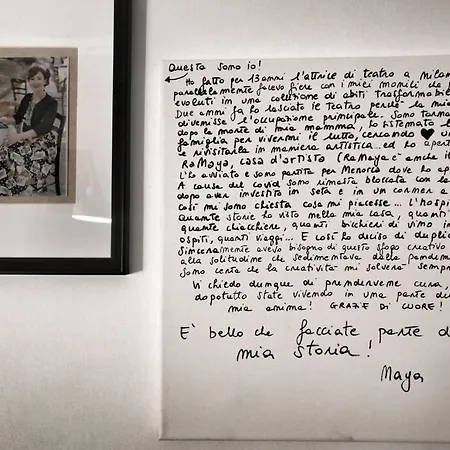 Questa sono io!
Ho fatto per 13 anni l'attrice di teatro a Milano
parallelamente facevo fiere con i miei monili da
evoluti in una collezione di abiti trasformabili
Due anni fa ho lasciato il teatro perché la mia
divenisse l'occupazione principale. Sono torna
dopo la morte di mia mamma, ho sistemato l
famiglia per viverni il lutto, cercando ♥ un
e rivisitarla in maniera artistica.. ed ho aperto
RaMaya, casa d'artista (RaMaya è anche il
L'ho avviata e sono partita per Menorca dove ho ap
A causa del covid sono rimasta bloccata con la
dopo aver investito in seta e in un corner a
così mi sono chiesta cosa mi piacesse... l'hospi
Quante storie ho visto nella mia casa, quanti
quante chiacchiere, quanti bicchieri di vino in
ospiti, quanti viaggi... E così ho deciso di duplic
Sinceramente avevo bisogno di questo sfogo creativo
alla solitudine che sedimentava dalla pandem
sono certa che la creatività mi salverà sempr
Vi chiedo dunque di prendervene cura,
dopotutto state vivendo in una parte de
mia anima! GRAZIE DI CUORE!
E' bello che facciate parte d
mia storia!
Maya